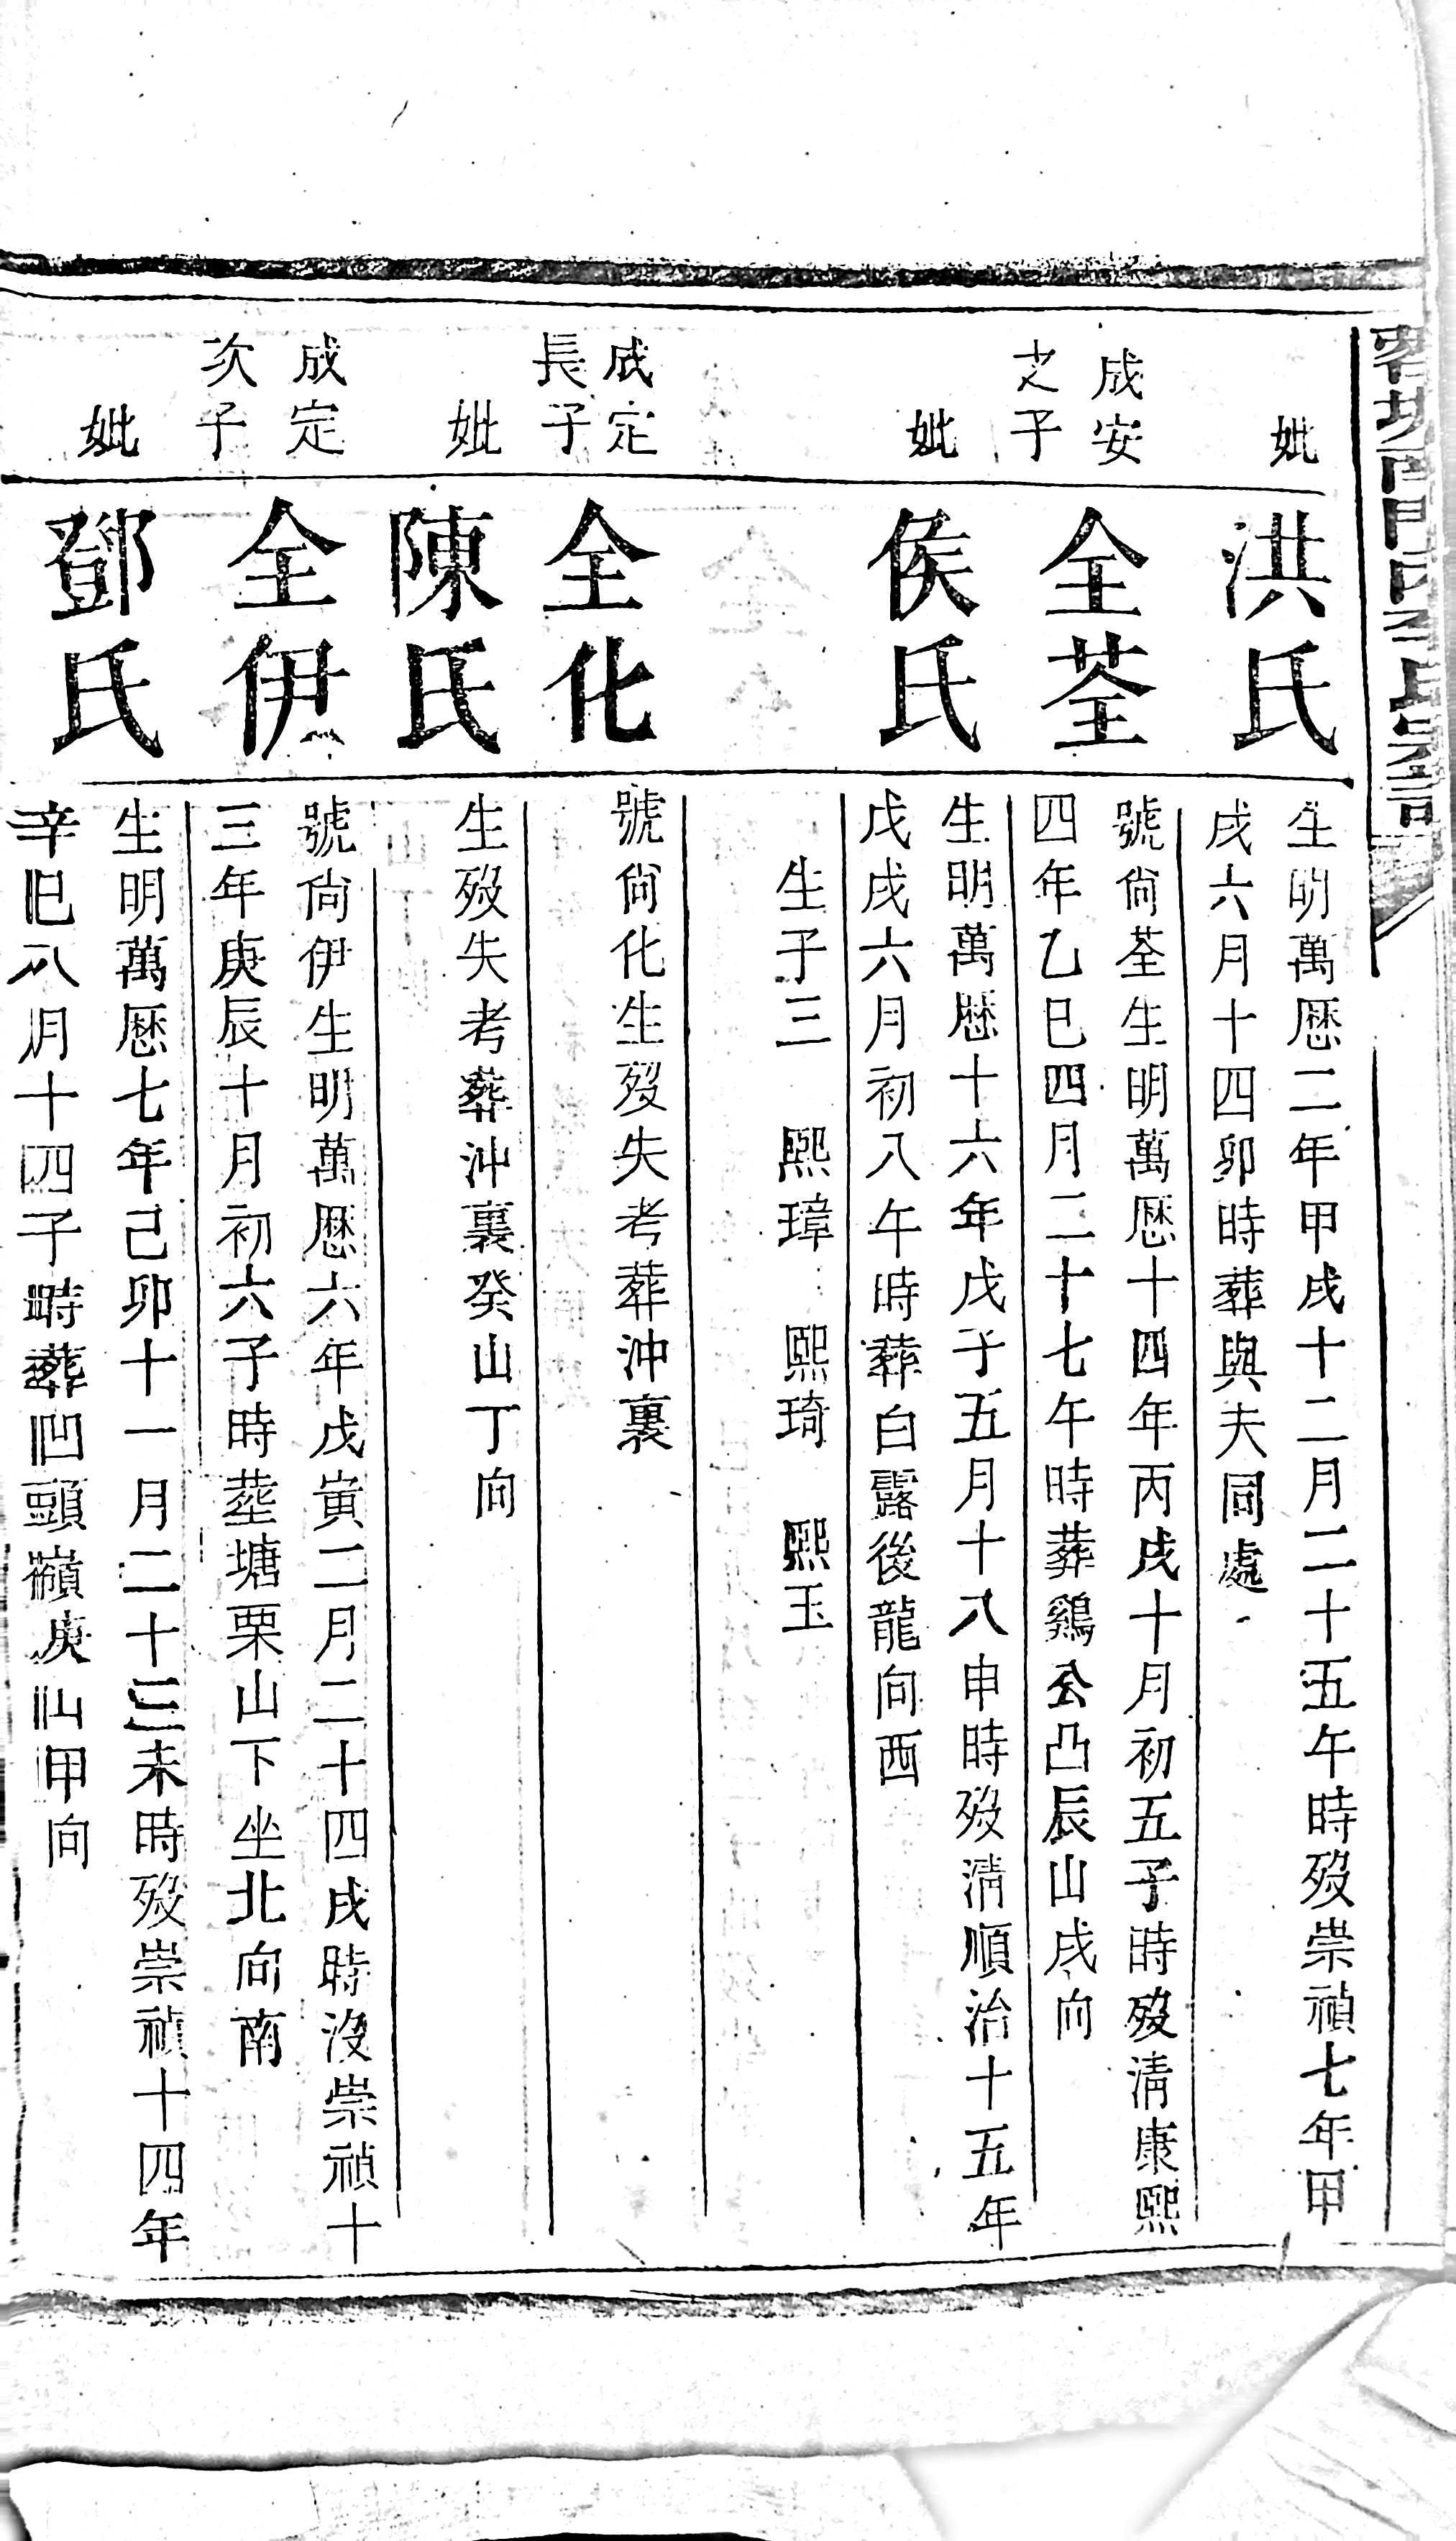 妣
洪氏
生明萬歷二年甲戌十二月二十五午時歿崇禎七年甲
戌六月十四卯時葬與夫同處
成安
之子
全荃
號尙荃生明萬歷十四年丙戌十月初五子時歿清康熙
四年乙巳四月二十七午時葬鷄公凸辰山戌向
妣
侯氏
生明萬歷十六年戊子五月十八申時歿清順治十五年
戊戌六月初八午時葬白露後龍向西
生子三 熙璋 熙琦 熙玉
成定
長子
全化
號尙化生歿失考葬沖裏
妣
陳氏
生歿失考葬沖裏癸山丁向
成定
次子
全伊
號尙伊生明萬歷六年戊寅二月二十四戌時沒崇禎十
三年庚辰十月初六子時塟塘栗山下坐北向南
妣
鄧氏
生明萬歷七年己卯十一月二十三未時歿崇禎十四年
辛巳八月十四子時葬凹頭嶺庚山甲向